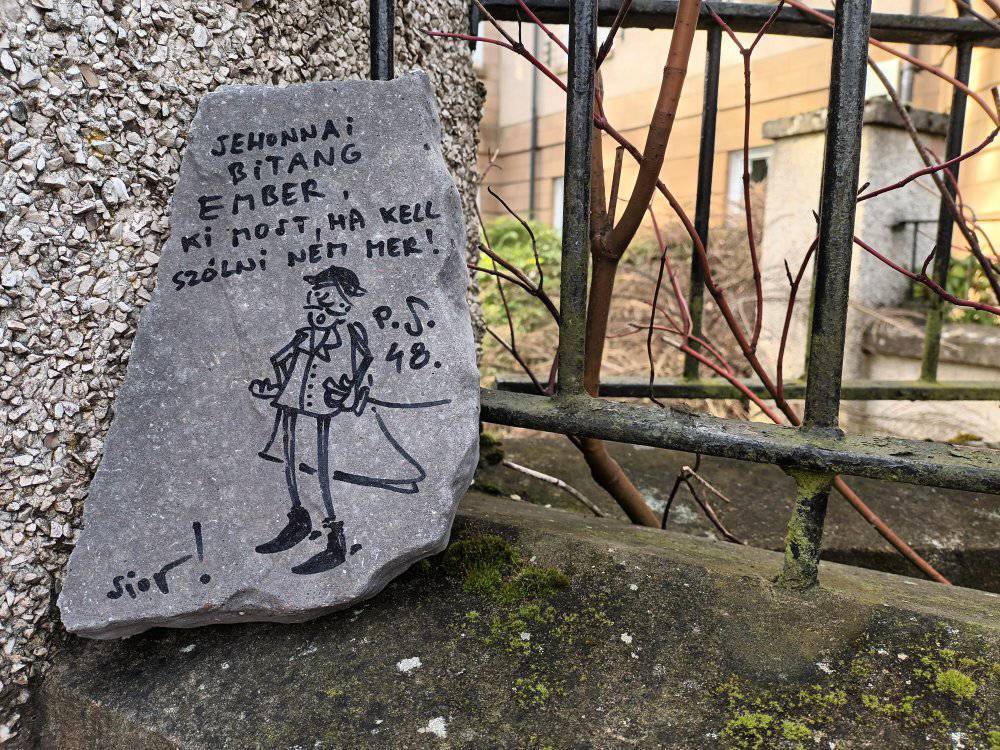 JEHONNAi
BiTANG
EMBER,
Ki MOST, HA KELL
SZÓLNi NEM MER!
P.S.
48.
sior!